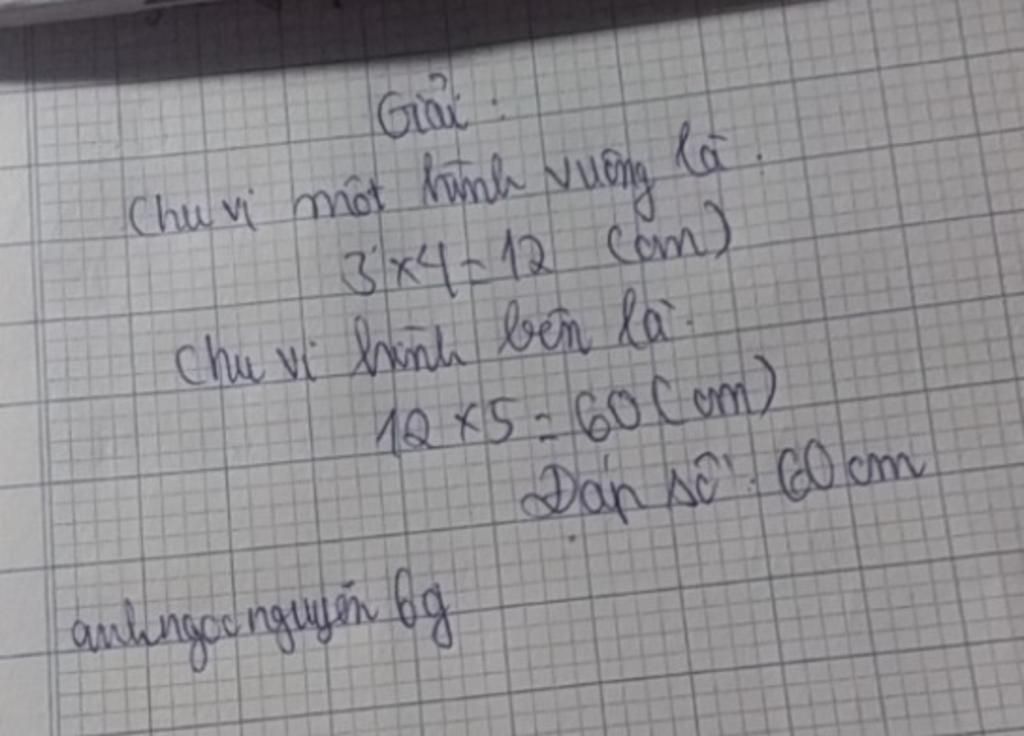 Giải :
Chu vi một hình vuông là :
3 x 4 = 12 (cm)
Chu vi hình bên là :
12 x 5 = 60 (cm)
Đáp số : 60 cm
anhngocnguyễn 6g